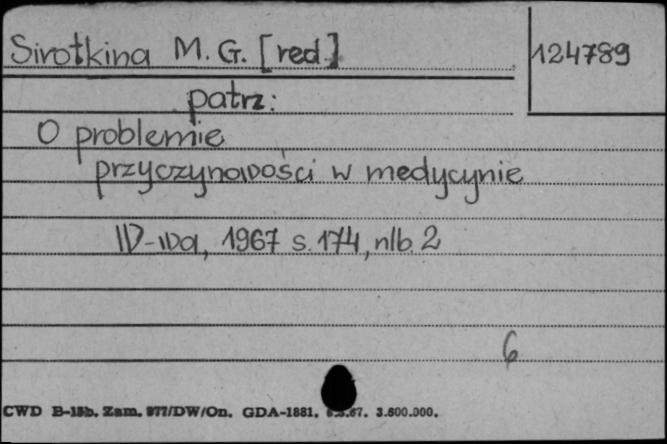 Sirotkina M. G. [red.]
124789
patrz:
O problemie
przyczynowości w medycynie
W-wa, 1967 s. 174, nlb. 2
6
CWD B-15b. Zam. 977/DW/On. GDA-1881. 3.600.000.